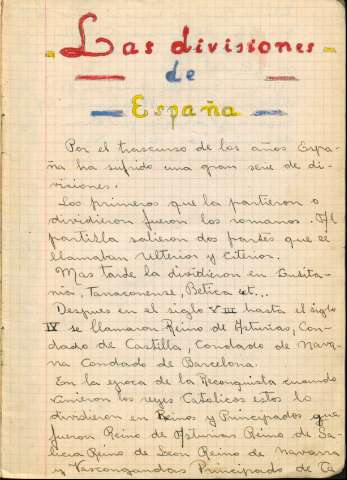 Las divisiones
de
España
Por el trascurso de los años Espa-
ña ha sufrido una gran serie de di-
visiones.
Los primeros que la partieron o
dividieron fueron los romanos. Al
partirla salieron dos partes que se
llamaban Ulterior y Citerior.
Mas tarde la dividieron en Lusita-
nia, Tanaconense, Betica et...
Despues en el siglo VIII hasta el siglo
IV se llamaron Reino de Asturias, Con-
dado de Castilla, Condado de Nava-
rra Condado de Barcelona.
En la epoca de la Reconquista cuando
vinieron los reyes Catolicos estos lo
dividieron en Reinos y Principados que
fueron Reino de Asturias Reino de Ga-
licia Reino de Leon Reino de Navarra
y Vascongandas Principado de Ca